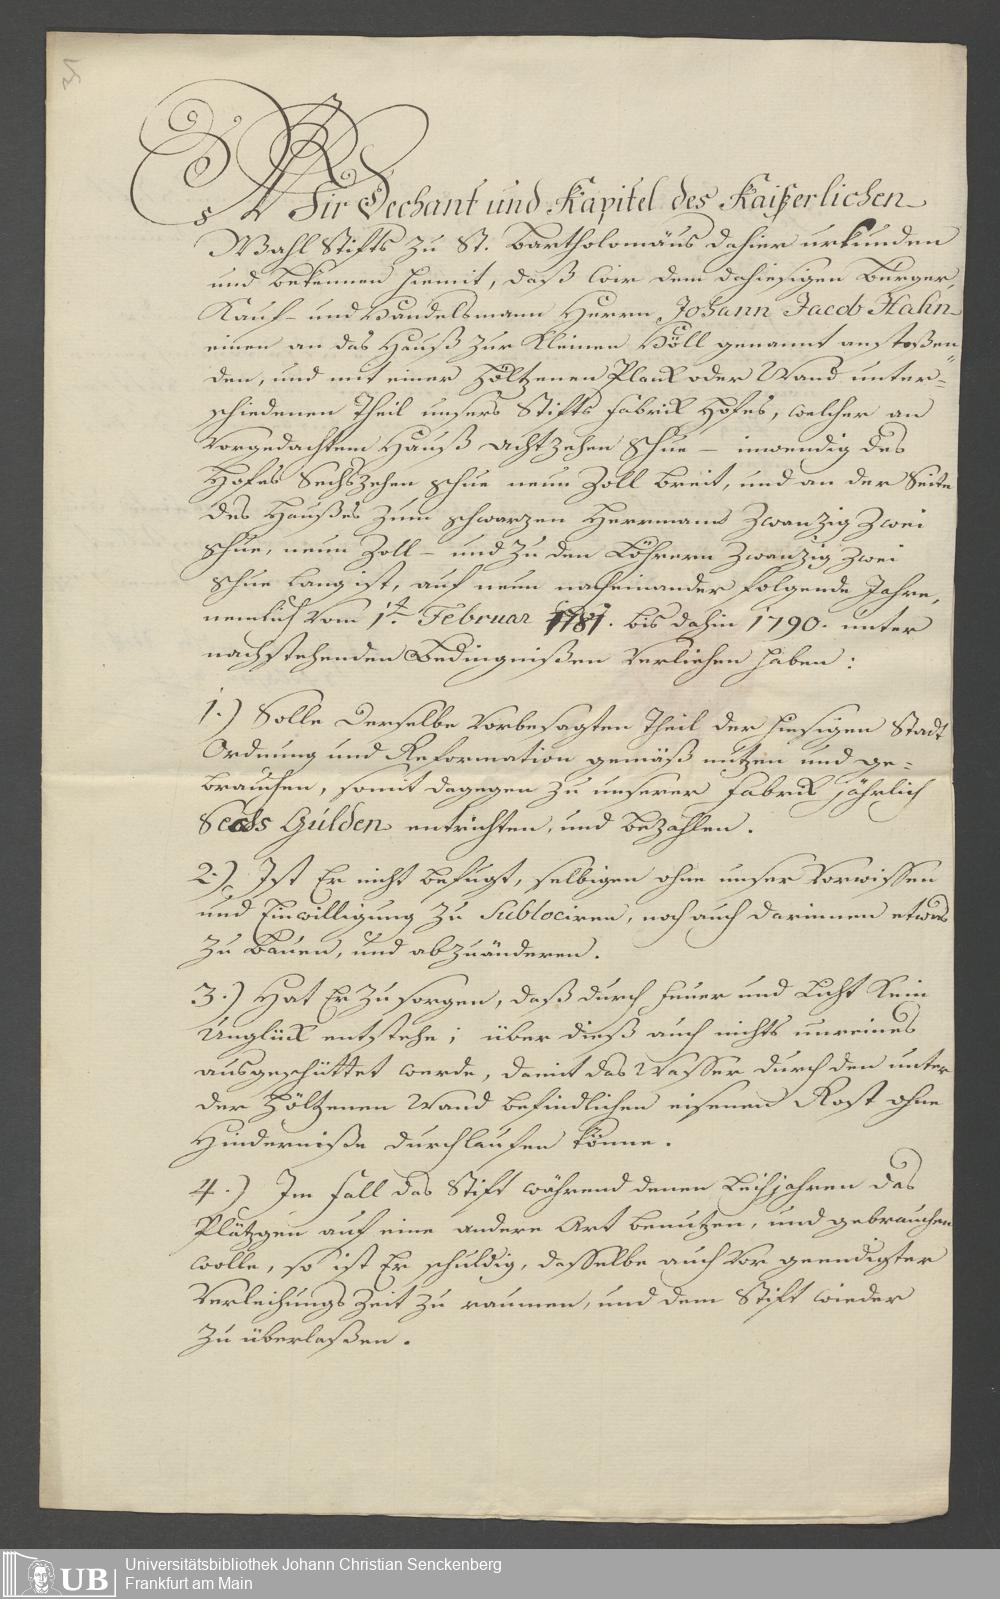 35
Wir Dechant und Kapitel des Kaißerlichen
Wahl Stifts zu St. Bartholomäus dahier urkunden
und bekennen hiemit, daß wir dem dahiesigen Burger,
Kauf- und Handelsmann Herrn Johann Jacob Hahn
einen an das Hauß zur kleinen Höll genannt anstoßen
den, und mit einer höltzenen Plank oder Wand unter-
schiedenen Theil unsers Stifts Fabrik Hofes, welcher an
Vorgedachtem Hauß achtzehen Schue – inwendig des
Hofes Sechszehen Schue neun Zoll breit, und an der Seite
des Haußes zum schwarzen Herrmann Zwanzig Zwei
Schue, neun Zoll – und zu den Löhrern Zwanzig Zwei
Schue lang ist, auf neun nacheinander folgende Jahre,
nemlich vom 1t. Februar 1781. bis dahin 1790. unter
nachstehenden Bedingnißen Verliehen haben:
1.) Solle derselbe Vorbesagten Theil der hiesigen Stadt
Ordnung und Reformation gemäß nutzen und ge-
brauchen, somit dagegen zu unserer Fabrik jährlich
Sechs Gulden entrichten, und bezahlen.
2.) Ist Er nicht befugt, selbigen ohne unser Vorwissen
und Einwilligung zu Sublociren, noch auch darinnen etwas
zu bauen, und abzuänderen.
3.) Hat Er zu sorgen, daß durch Feuer und Licht kein
Unglück entstehe; über dieß auch nichts unreines
ausgeschüttet werde, damit das Wasser durch den unter
der höltzenen Wand befindlichen eisenen Rost ohne
Hinderniße durchlaufen könne.
4.) Im Fall das Stift während denen Leihjahren das
Plätzgen auf eine andere Art benutzen, und gebrauchen
wolle, so ist Er schuldig, dasselbe auch vor geendigter
Verleihungs Zeit zu raumen, und dem Stift wieder
zu überlaßen.
UB
Universitätsbibliothek Johann Christian Senckenberg
Frankfurt am Main